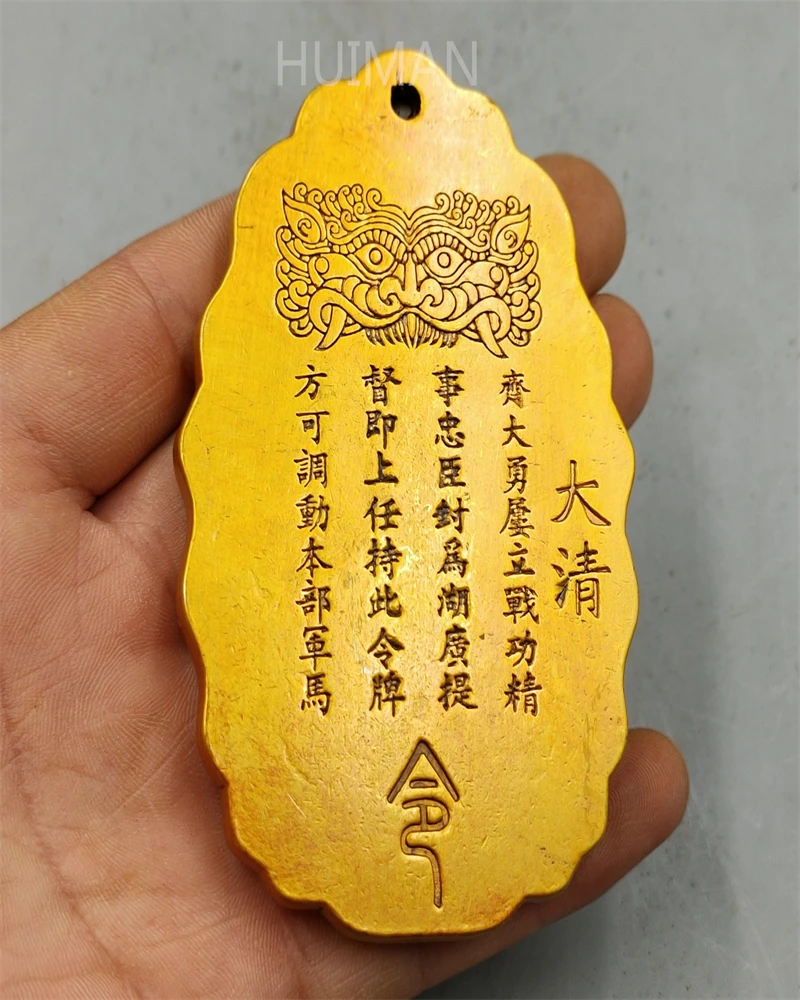 HUIMAN
大清
齊大勇屢立戰功精
事忠臣封爲湖廣提
督即上任持此令牌
方可調動本部軍馬
令